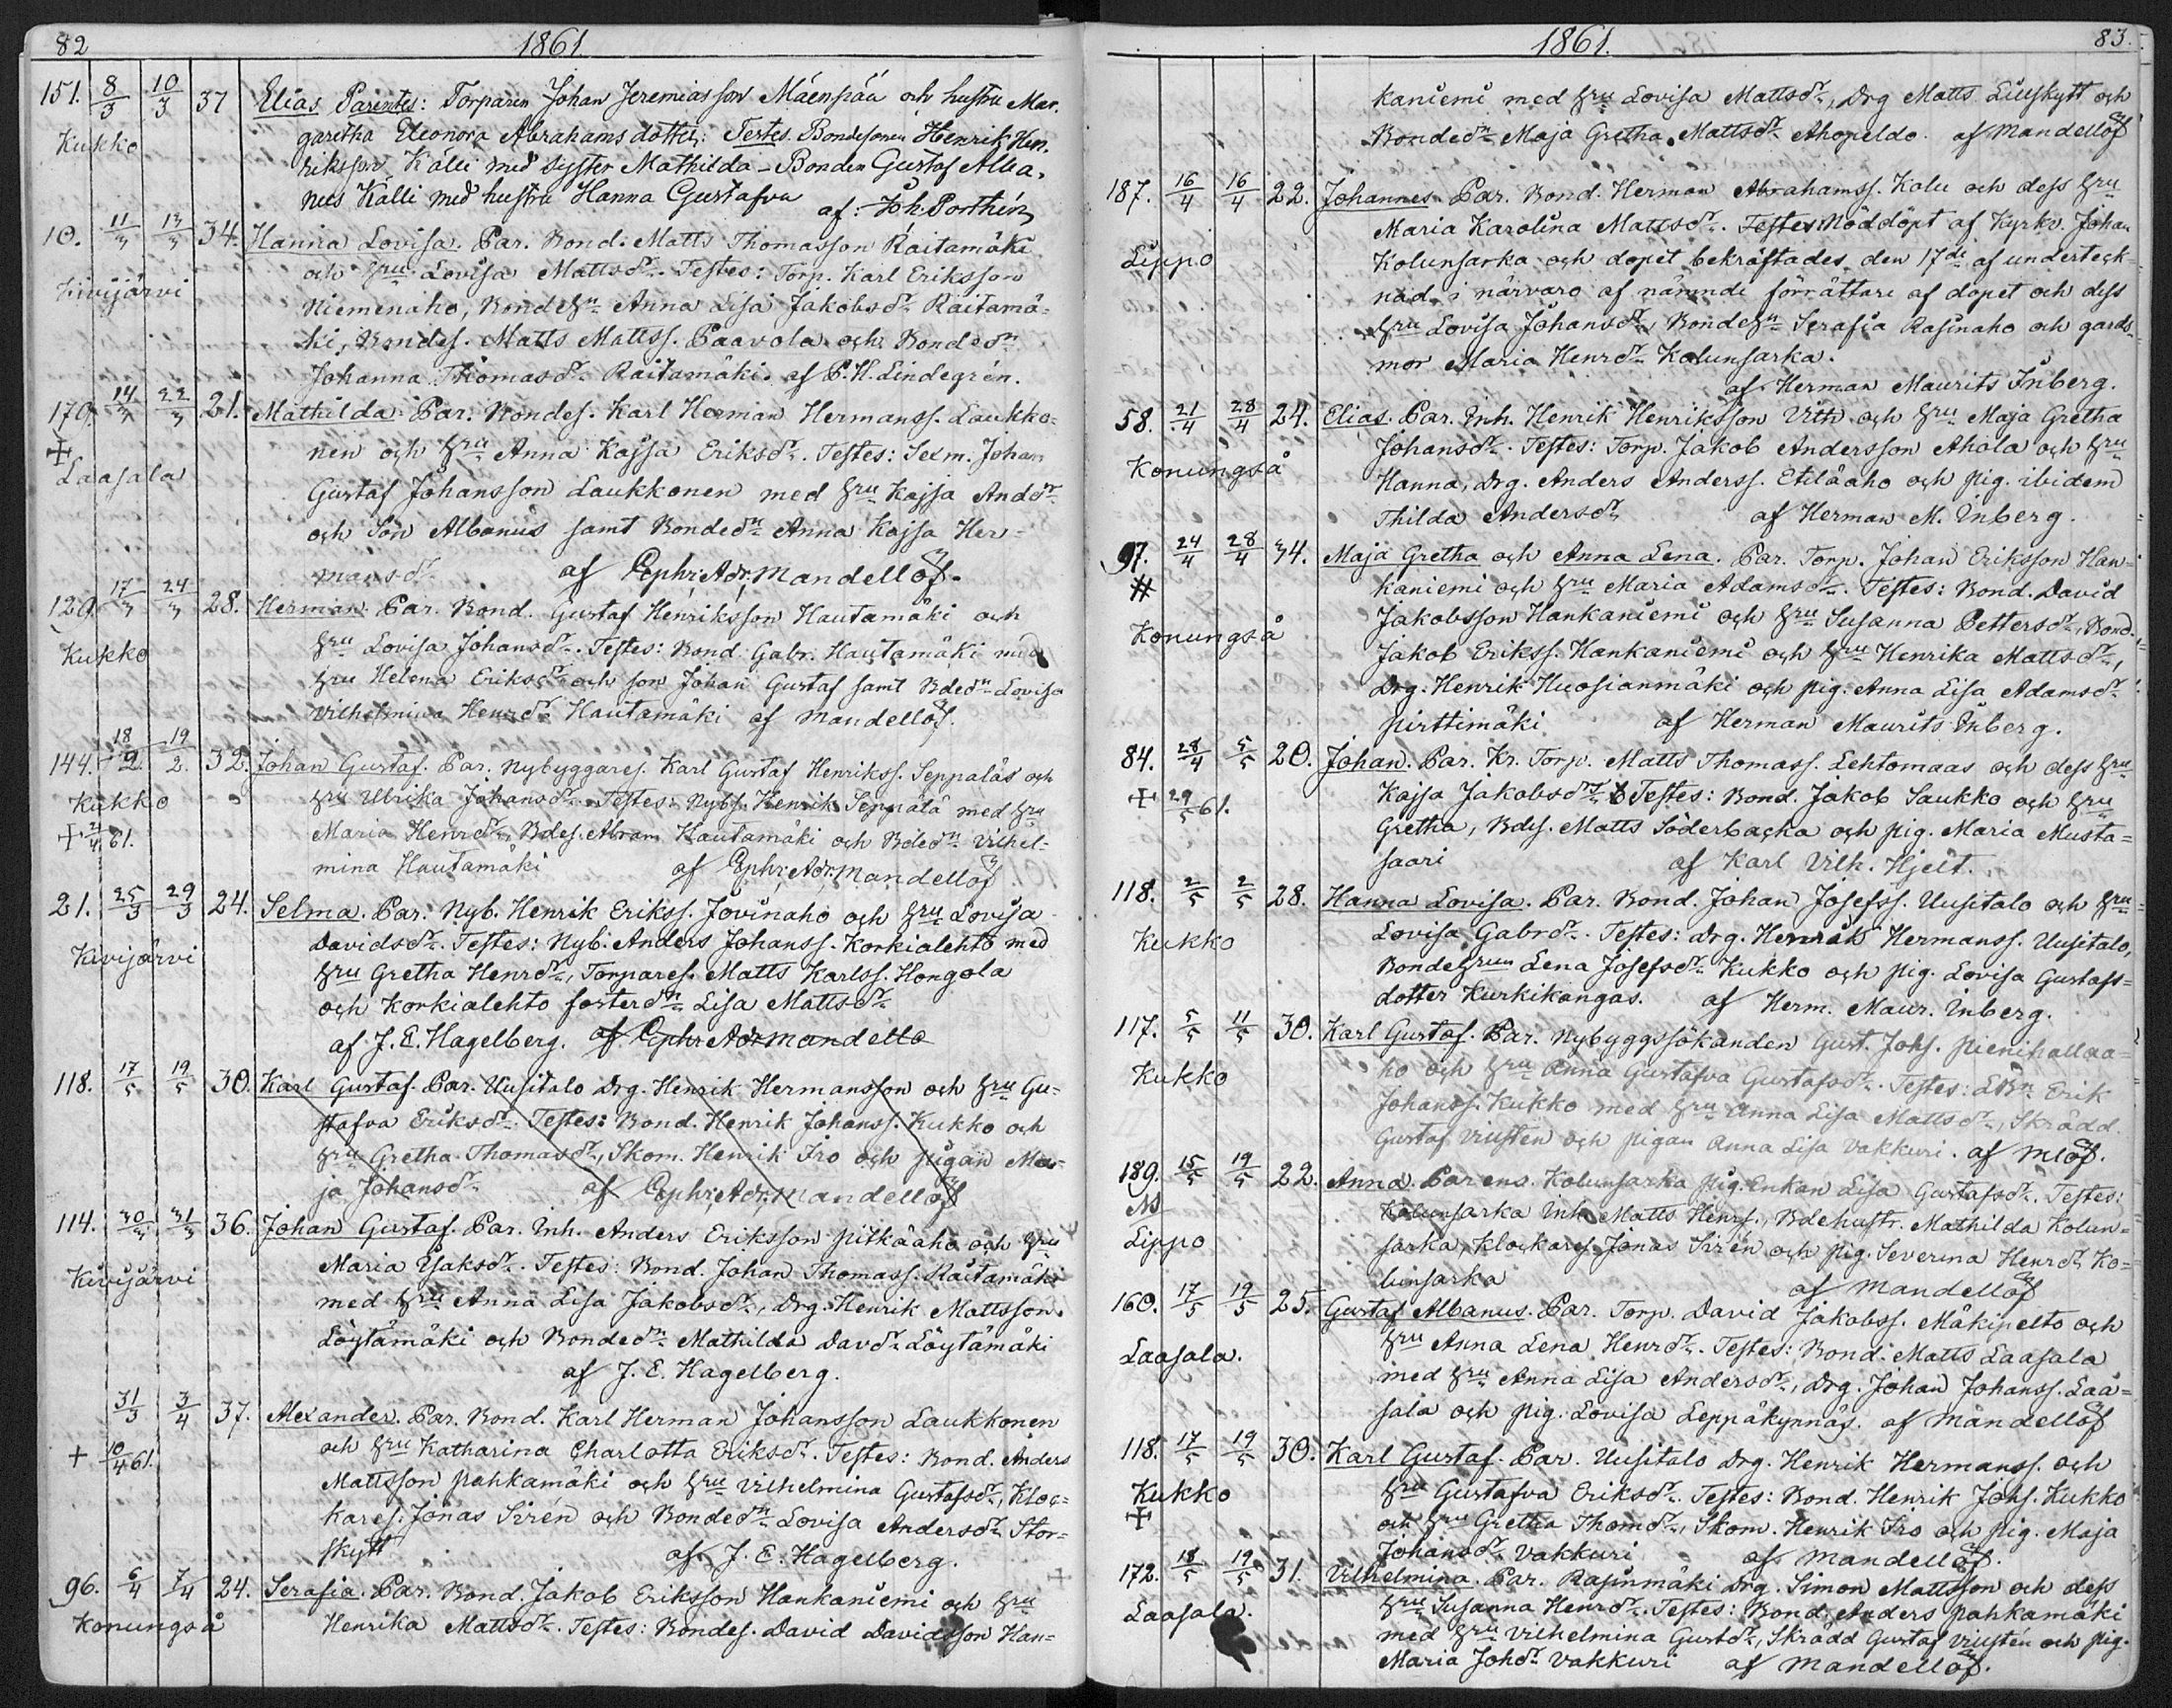 82 1861.
151. 8/3 10/3 37 Elias Parentes: Torparen Johan Jeremiasson Mäenpää och hustru Mar-
Kukko garetha Eleonora Abrahams dotter: Testes. Bondesonen Henrik Hen-
riksson Källi med syster Mathilda – Bonden Gustaf Alba-
nus Källi med hustru Hanna Gustafva af: Joh. Porthén
10. 11/3 13/3 34. Hanna Lovisa. Par. Bond. Matts Thomasson Raitamäki
Kivijärvi och hru Lovisa Mattsdr. Testes: Torp. Karl Eriksson
Niemenaho, Bondehu Anna Lisa Jakobsdr Raitamä-
ki, Bondes. Matts Mattss. Paavola och Bondedn
Johanna Thomasdr Raitamäki. af P. H. Lindegrén.
170. 14/3 22/3 21. Mathilda. Par. Bondes. Karl Herman Hermanss. Laukko-
+ nen och hru Anna Kajsa Eriksdr. Testes: Sexm. Johan
Laasala Gustaf Johansson Laukkonen med hru Kajsa Anddr
och Son Albanus samt Bondedn Anna Kajsa Her-
mansdr af Ephr. Adr. Mandellöf.
129. 17/3 24/3 28. Herman. Par. Bond. Gustaf Henriksson Hautamäki och
Kukko hru Lovisa Johansdr. Testes: Bond. Gabr. Hautamäki med
hru Helena Eriksdr och son Johan Gustaf samt Bdedn Lovisa
Vilhelmina Henrdr Hautamäki af Mandellöf.
144. 18/2 19/2 32. Johan Gustaf. Par. Nybyggares. Karl Gustaf Henrikss. Seppäläs och
Kukko hru Ulrika Johansdr. Testes: Nybs. Henrik Seppälä med hru
+ 2/4 61. Maria Henrdr, Bdes. Abram Hautamäki och Bdedn Vilhel-
mina Hautamäki af Ephr. Adr. Mandellöf
21. 25/3 29/3 24. Selma. Par. Nyb. Henrik Erikss. Jovinaho och hru Lovisa
Kivijärvi Davidsdr. Testes: Nyb. Anders Johanss. Korkialehto med
hru Gretha Henrdr, Torpares. Matts Karlss. Hongola
och Korkialehto fosterdn Lisa Mattsdr
af J. E. Hagelberg. af Ephr Adr Mandello
118. 17/5 19/5 30. Karl Gustaf. Par. Uusitalo Drg. Henrik Hermansson och hru Gu-
stafva Eriksdr. Testes: Bond. Henrik Johanss. Kukko och
hru Gretha Thomasdr, Skom. Henrik Iro och pigan Ma-
ja Johansdr af Ephr. Adr. Mandellöf
114. 30/3 31/3 36. Johan Gustaf. Par. Inh. Anders Eriksson Pitkäaho och hru
Kivijärvi Maria Isaksdr. Testes: Bond. Johan Thomass. Raitamäki
med hru Anna Lisa Jakobsdr, Drg. Henrik Mattsson
Löytämäki och Bondedn Mathilda Davdr Löytämäki
af J. E. Hagelberg.
31/3 3/4 37. Alexander. Par. Bond. Karl Herman Johansson Laukkonen
+ 10/4 61. och hru Katharina Charlotta Eriksdr. Testes: Bond. Anders
Mattsson Pahkamäki och hru Vilhelmina Gustafsdr, Kloc-
kares. Jonas Sirén och Bondedn Lovisa Andersdr Stor-
skytt af J. E. Hagelberg.
96. 6/4 7/4 24. Serafia. Par. Bond. Jakob Eriksson Hankaniemi och hru
Konungså Henrika Mattsdr. Testes: Bondes. David Davidsson Han-
1861. 83.
kaniemi med hru Lovisa Mattsdr, Drg Matts Lillskytt och
Bondedn Maja Gretha Mattsdr Ahopeldo. af Mandellöf
187. 16/4 16/4 22. Johannes. Par. Bond. Herman Abrahamss. Kolu och dess hru
Maria Karolina Mattsdr. Testes Nöddöpt af Kyrkv. Johan
Lippo Kolunsarka och dopet bekräftades den 17de af underteck-
nad i närvaro af nämnde förrättare af dopet och dess
hru Lovisa Johansdr, Bondehu Serafia Rasinaho och gards-
mor Maria Henrdr Kolunsarka.
af Herman Maurits Inberg.
58. 21/4 28/4 24. Elias. Par. Inh. Henrik Henriksson Vith och hru Maja Gretha
Konungså Johansdr. Testes: Torp. Jakob Andersson Ahola och hru
Hanna, Drg. Anders Anderss. Etiläaho och pig. ibidem
Thilda Andersdr af Herman M. Inberg.
97. 24/4 28/4 34. Maja Gretha och Anna Lena. Par. Torp. Johan Eriksson Han-
# kaniemi och hru Maria Adamsdr. Testes: Bond. David
Konungså Jakobsson Hankaniemi och hru Susanna Pettersdr, Bond.
Jakob Erikss. Hankaniemi och hru Henrika Mattsdr,
Drg. Henrik Huosianmäki och pig. Anna Lisa Adamsdr
Pirttimäki af Herman Maurits Inberg.
84. 28/4 5/5 20. Johan. Par. Kr. Torp. Matts Thomass. Lehtomaas och dess hru
+ 29/5 61. Kajsa Jakobsdr. Testes: Bond. Jakob Saukko och hru
Gretha, Bds. Matts Söderbacka och pig. Maria Musta-
saari af Karl Vilh. Hjelt.
118. 2/5 2/5 28. Hanna Lovisa. Par. Bond. Johan Josefss. Uusitalo och hru
Kukko Lovisa Gabrdr. Testes: Drg. Henrik Hermanss. Uusitalo,
Bondehrun Lena Josefsdr Kukko och pig. Lovisa Gustafs-
dotter Kurkikangas. af Herm. Maur. Inberg.
117. 5/5 11/5 30. Karl Gustaf. Par. Nybyggssökanden Gust. Johs. Pienihallaa-
Kukko ho och hru Anna Gustafva Gustafsdr. Testes: LBn Erik
Johanss. Kukko med hru Anna Lisa Mattsdr, Skrädd.
Gustaf Viisten och pigan Anna Lisa Vakkuri. af Mlöf.
189. 15/5 19/5 22. Anna. Parens. Kolunsarka pig. Enkan Lisa Gustafsdr. Testes:
Kolunsarka Inh. Matts Henrs., Bdehustr. Mathilda Kolun-
Lippo sarka, Klockares. Jonas Sirén och pig. Severina Henrdr Ko-
lunsarka af Mandellöf
160. 17/5 19/5 25. Gustaf Albanus. Par. Torp. David Jakobss. Mäkipelto och
Laasala. hru Anna Lena Henrdr. Testes: Bond. Matts Laasala
med hru Anna Lisa Andersdr, Drg. Johan Johanss. Laa-
sala och pig. Lovisa Leppäkynnäs. af Mandellöf
118. 17/5 19/5 30. Karl Gustaf. Par. Uusitalo Drg. Henrik Hermanss. och
Kukko hru Gustafva Eriksdr. Testes: Bond. Henrik Johs. Kukko
+ och hru Gretha Thomdr, Skom. Henrik Iro och pig. Maja
Johansdr Vakkuri af Mandellöf.
172. 18/5 19/5 31. Vilhelmina. Par. Rasinmäki Drg. Simon Mattsson och dess
Laasala. hru Susanna Henrdr. Testes: Bond. Anders Pahkamäki
med hru Vilhelmina Gustdr, Skrädd Gustaf Viistén och pig.
Maria Johdr Vakkuri af Mandellöf.